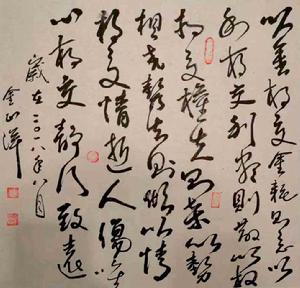 以金相交金耗則忘以
利相交利盡則散以權
相交權失則棄以勢
相交勢去則傾以情
相交情逝人傷唯
心相交靜行致遠
歲在二〇一八年八月